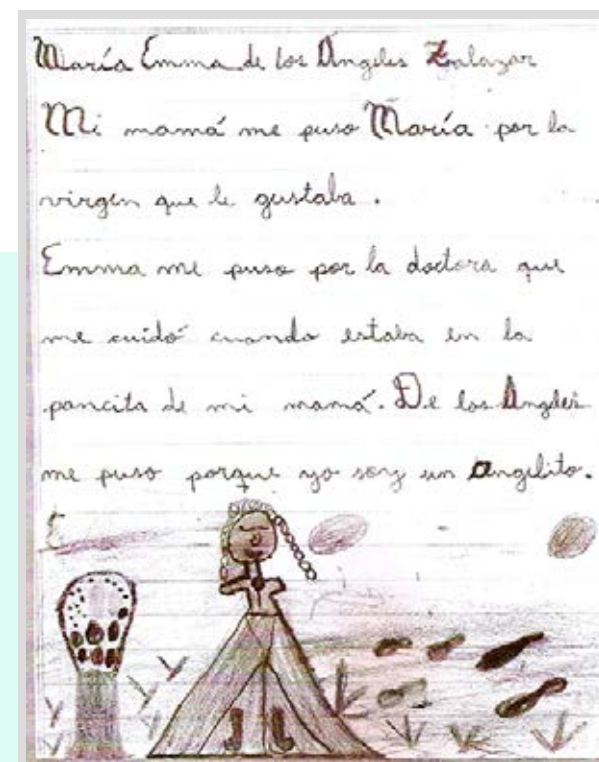 María Emma de los Angeles Zalazar
Mi mamá me puso María por la
virgen que le gustaba.
Emma me puso por la doctora que
me cuidó cuando estaba en la
pancita de mi mamá. De los Angeles
me puso porque yo soy un angelito.